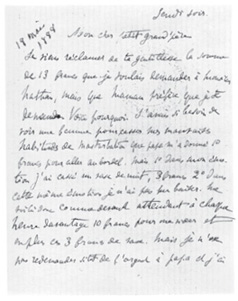 18 mai 1888
Jeudi soir.
Mon cher petit grand'père
Je viens réclamer de ta gentillesse la somme
de 13 francs que je voulais demander à monsieur
Nathan, mais que Maman préfère que je te
demande. Voici pourquoi. J'avais si besoin de
voir une femme pour cesser mes mauvaises
habitudes de masturbation que papa m'a donné 10
francs pour aller au bordel. Mais 1° dans mon émo-
tion j'ai cassé un vase de nuit, 3 francs 2° dans
cette même émotion je n'ai pas pu baiser. Me
voilà donc comme devant attendant à chaque
heure davantage 10 francs pour me vider et
en plus ces 3 francs de vase. Mais je n'ose
pas redemander sitôt de l'argent à papa et j'ai